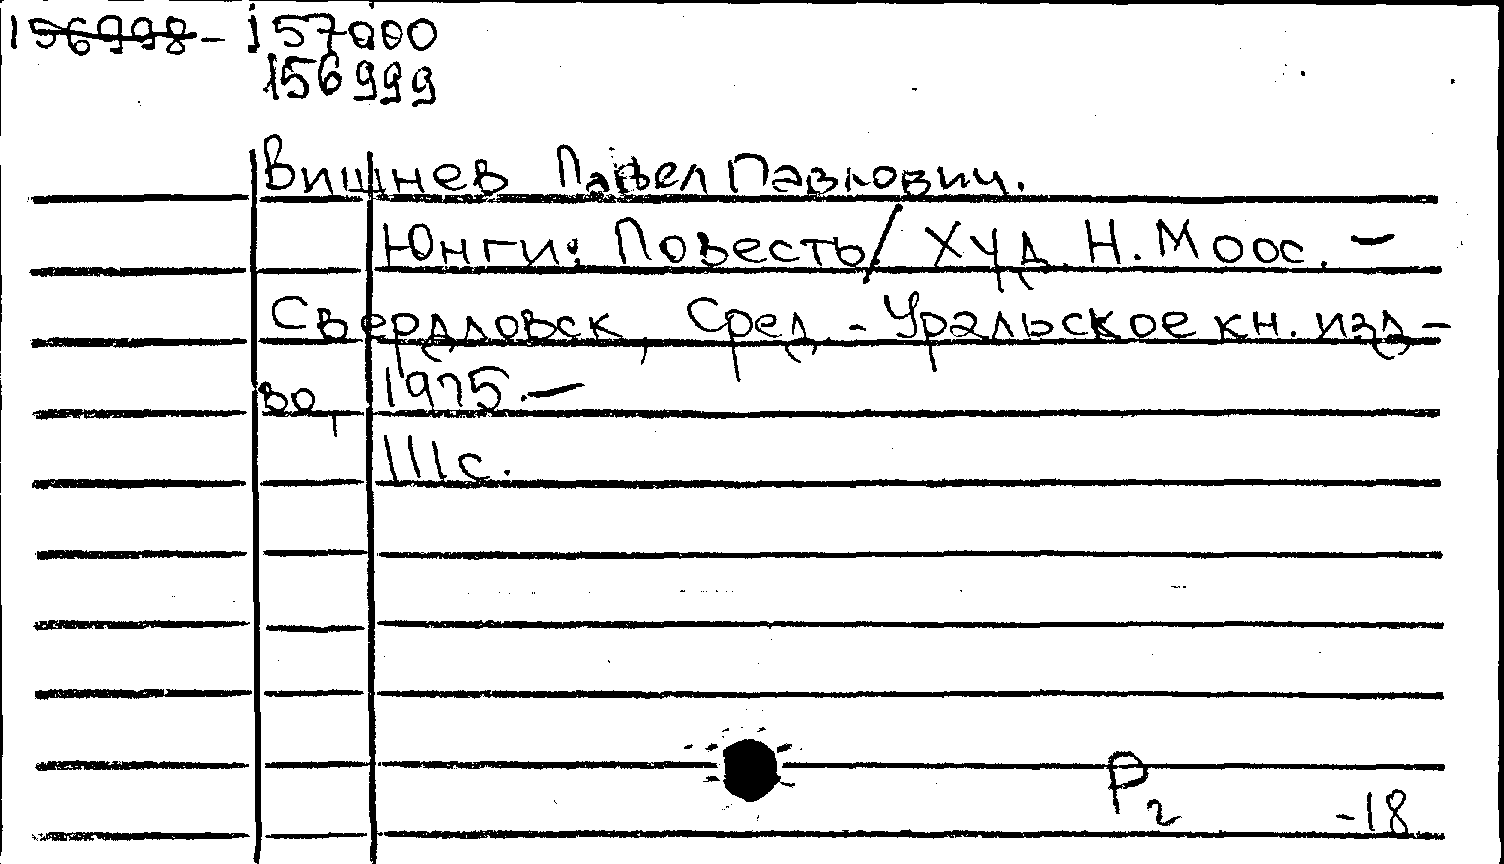 156998 - 157000
156999
Вишнев Павел Павлович.
Юнги: Повесть/ Худ. Н. Моос. —
Свердловск, Сред. - Уральское кн. изд-
во, 1975. —
111 с.
Р2 -18